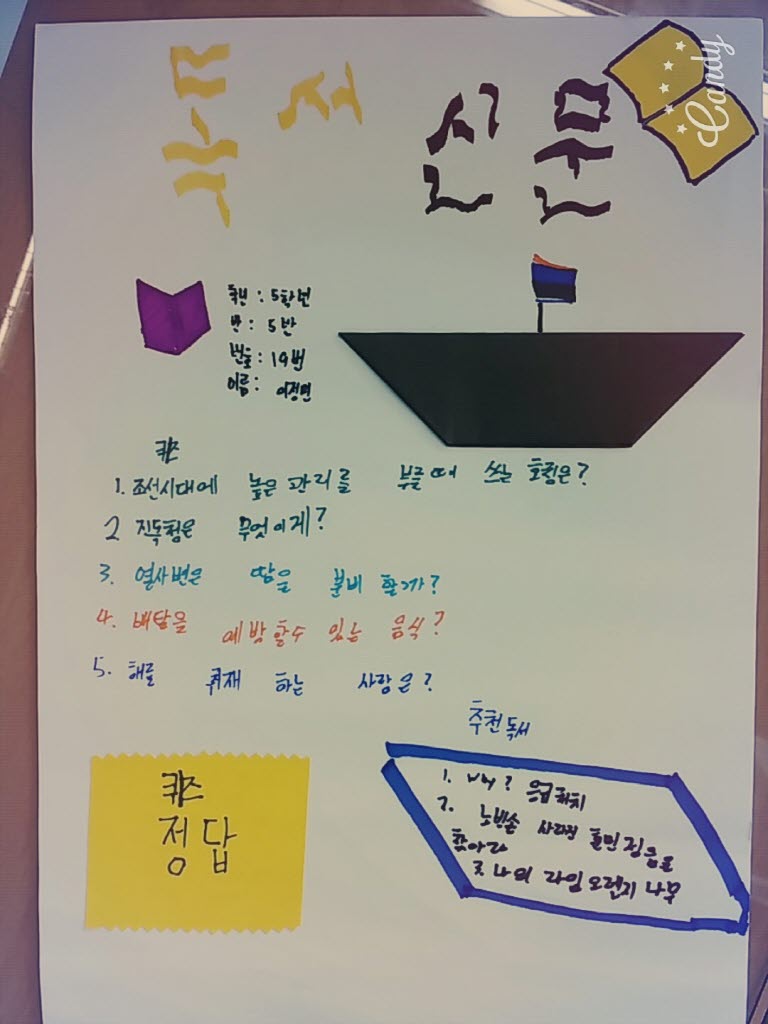 Candy
학년 : 5학년
반 : 5반
번호 : 19번
이름 :
퀴즈
1. 조선시대에 높은 관리를 부를때 쓰는 호칭은?
2 진독청은 무엇이게?
3. 열사변은 땀을 분비 할까?
4. 배탈을 예방할수 있는 음식?
5. 해를 취재 하는 사람은?
추천독서
1. why? 응급처치
2. 노빈손 사라진 훈민정음을
찾아라
3 나의 라임오렌지 나무
퀴즈
정답